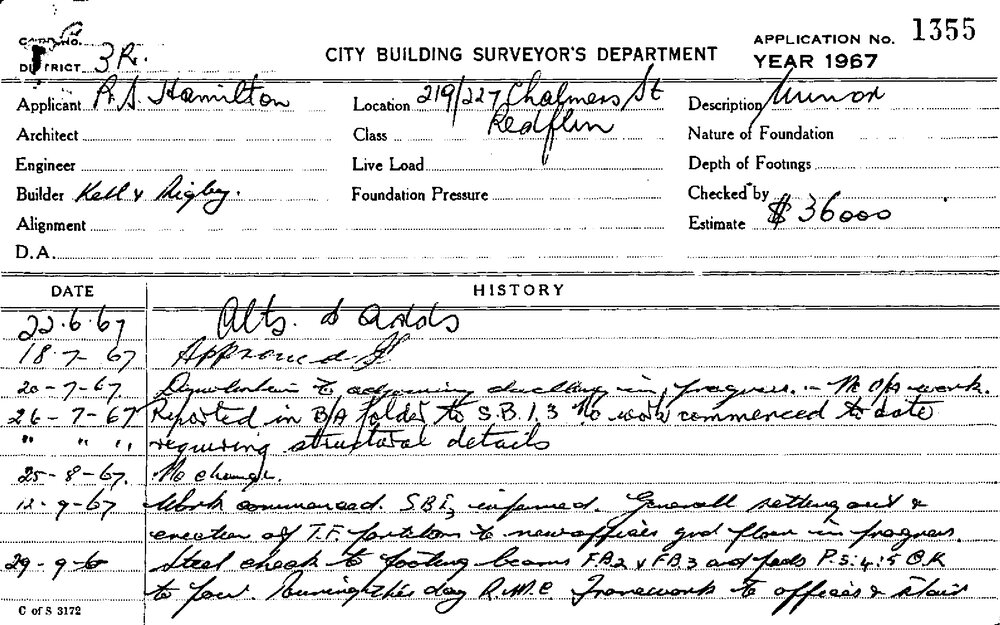 CARD NO.
DISTRICT 3R.
CITY BUILDING SURVEYOR'S DEPARTMENT
APPLICATION No. 1355
YEAR 1967
Applicant P. S. Hamilton Location 219/227 Chalmers St Description Minor
Redfern
Architect Class Nature of Foundation
Engineer Live Load Depth of Footings
Builder Kell & Rigby. Foundation Pressure Checked by
Alignment Estimate $ 36000
D.A.
DATE HISTORY
22.6.67 Alts. & adds
18.7-67 Approved
20-7-67. Demolition to adjoining dwelling in progress. - No o/s work.
26-7-67 Reported in B/A folder to S.B.I.3 No work commenced to date
" " " requiring structural details
25-8-67. No change.
12-9-67 Work commenced. SBI3 informed. Generall setting out &
erection of T.F. partitions to new offices grd floor in progress.
29-9-6 Steel check to footing beams FB2 & FB3 and pads P.3:4:5 O.K
to pour. Pouring this day R.M.C. Framework to offices & stair
C of S 3172